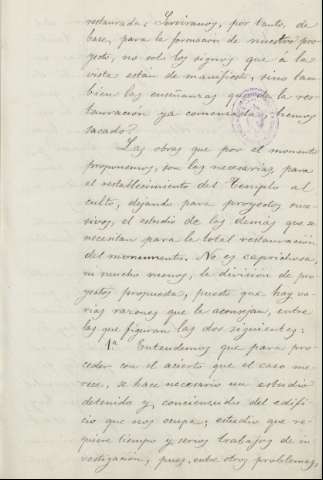 restaurada. Sirvíranos, por tanto, de
base, para la formación de nuestro pro-
yecto, no solo los signos que a la
vista están de manifiesto, sino tam-
bien las enseñanzas que de la res-
tauración ya comenzada, hemos
sacado.
Las obras que por el momento
proponemos, son las necesarias, para
el restablecimiento del Templo al
culto, dejando para proyectos suce-
sivos, el estudio de las demás que se
necesitan para la total restauración
del monumento. No es caprichosa,
ni mucho menos, la división de pro-
yectos propuesta, puesto que hay va-
rias razones que la aconsejan, entre
las que figuran las dos siguientes:
1.ª Entendemos que para pro-
ceder con el acierto que el caso me-
rece, se hace necesario un estudio
detenido y concienzudo del edifi-
cio que nos ocupa; estudio que re-
quiere tiempo y serios trabajos de in-
vestigación, pues, entre otros problemas,